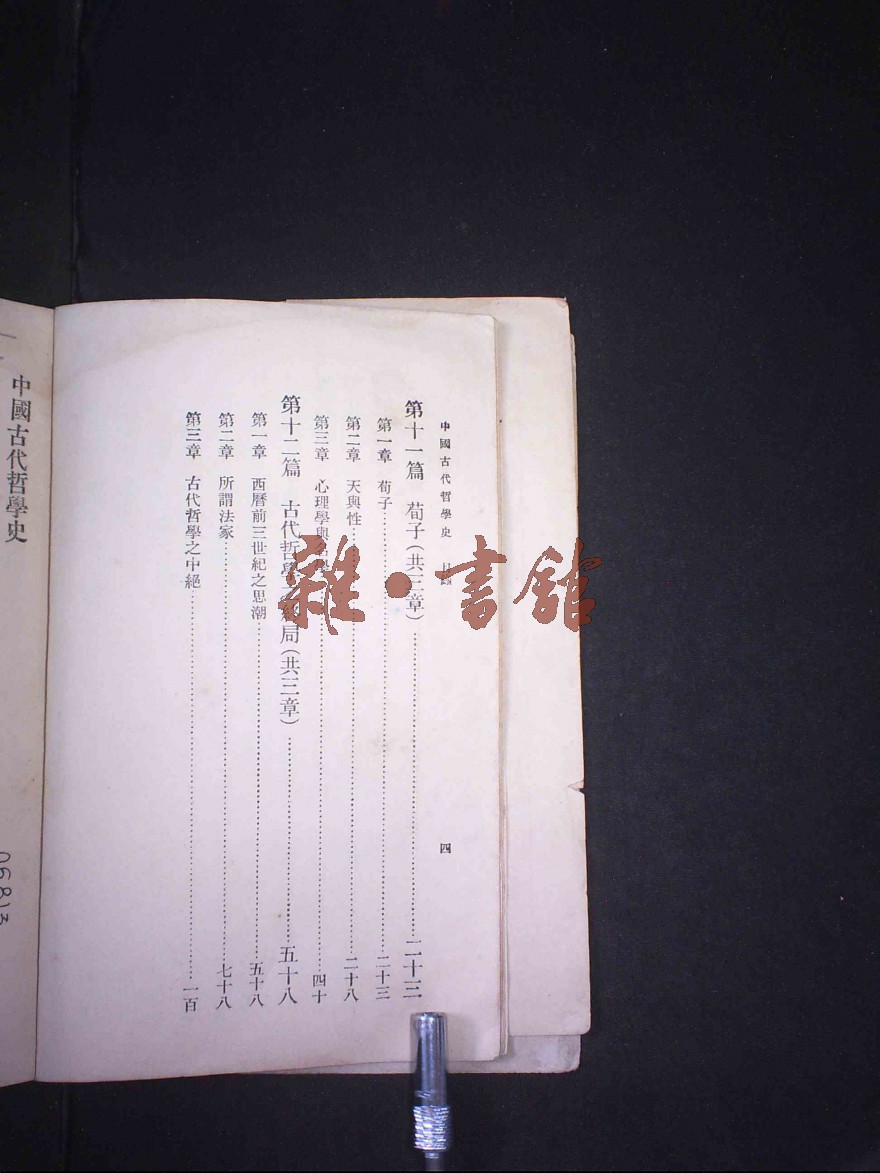 中國古代哲學史 目錄
四
第十一篇 荀子(共三章)……二十三
第一章 荀子……二十三
第二章 天與性……二十八
第三章 心理學與名學……四十
第十二篇 古代哲學之終局(共三章)……五十八
第一章 西曆前三世紀之思潮……五十八
第二章 所謂法家……七十八
第三章 古代哲學之中絕……一百
雜·書館
中國古代哲學史
06813